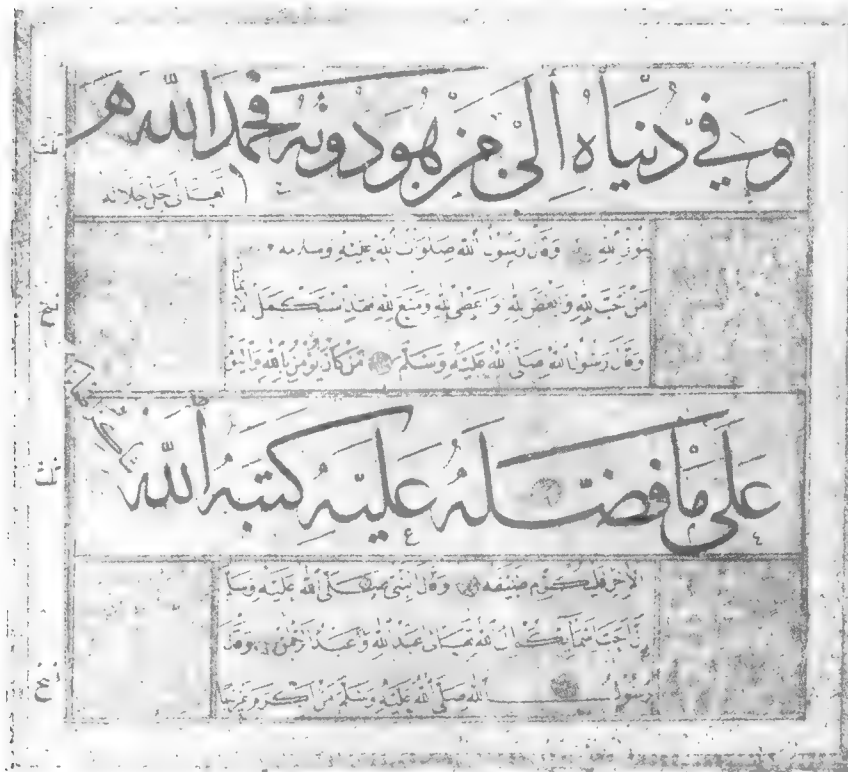 وَفِي دُنْيَاهُ إِلَى مَنْ هُوَ دُونَهُ فَحَمِدَ اللهَ هـ
تعالى جل جلاله
ثلث
وقال رسول الله صلوات الله عليه وسلامه
نسخ
من احب لله وابغض لله واعطى لله ومنع لله فقد استكمل
وقال رسول الله صلى الله عليه وسلم من كان يؤمن بالله واليو
عَلَى مَا فَضَّلَهُ عَلَيْهِ كَتَبَهُ اللهُ
شاكرا
ثلث
الاخر فليكرم ضيفه وقال النبي صلى الله عليه وسلم
ان احب اسمائكم الى الله تعالى عبد الله وعبد الرحمن وقال
نسخ
رسول الله صلى الله عليه وسلم من اكرم غريبا